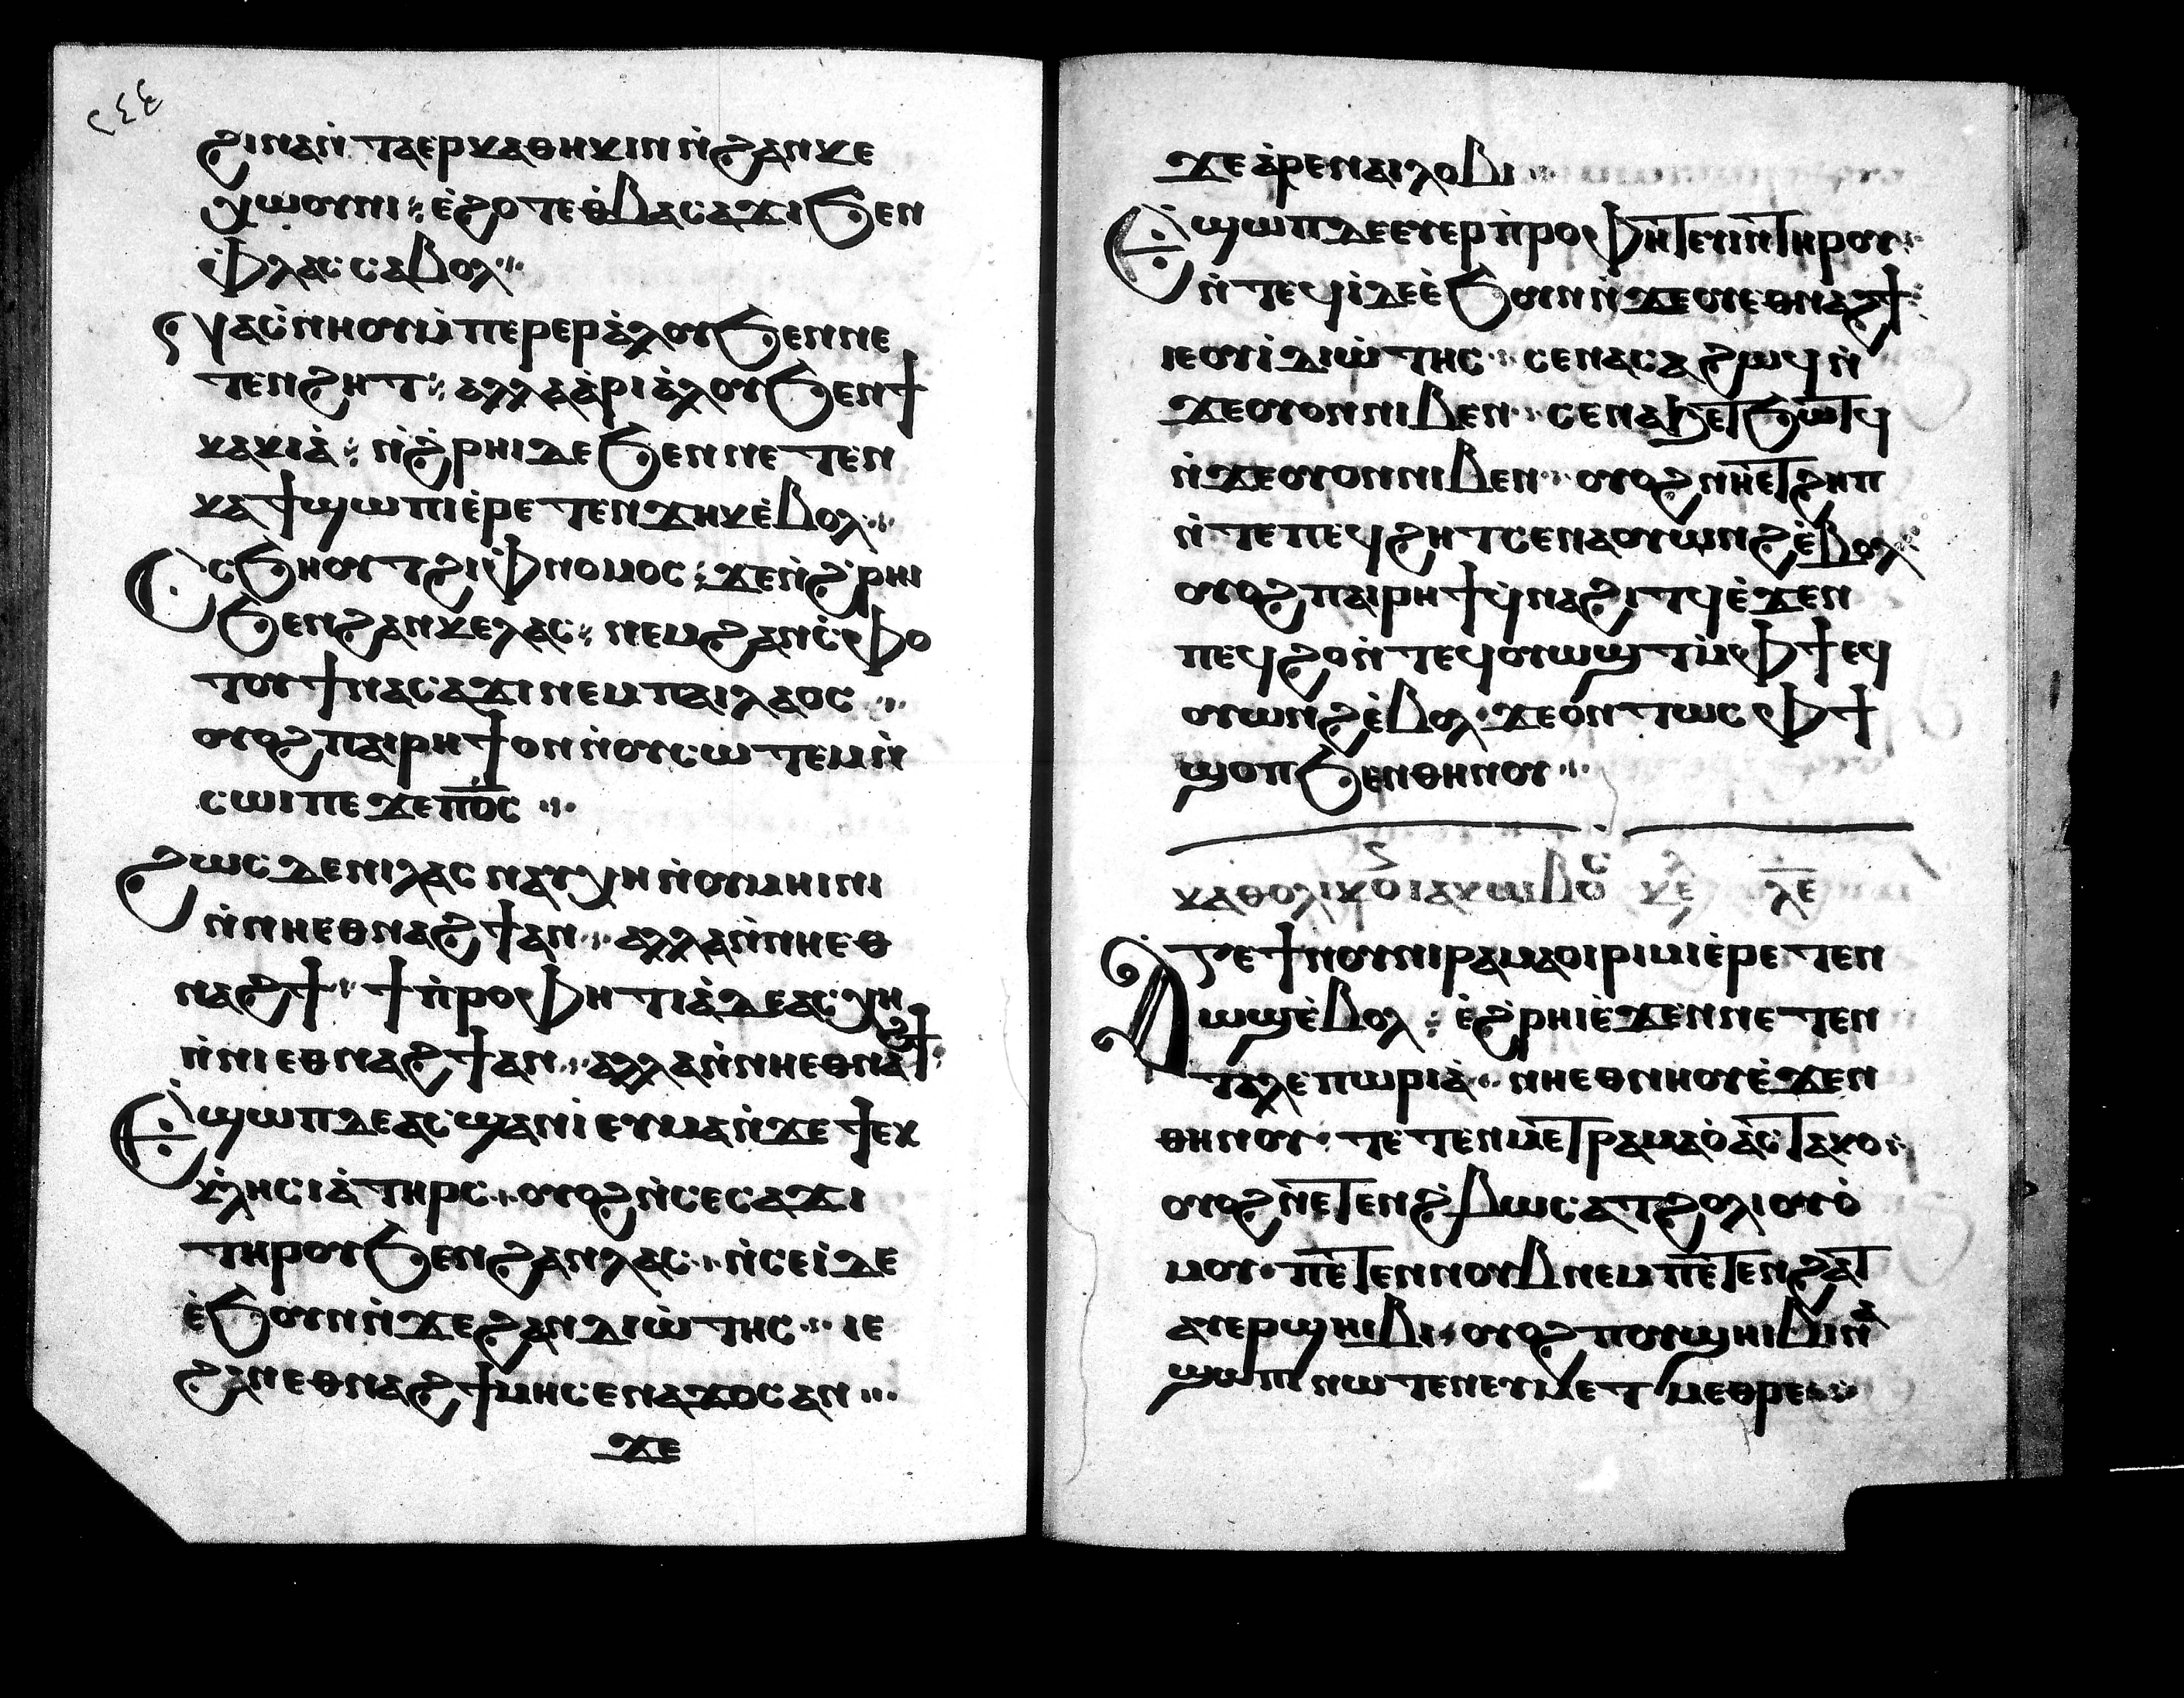 ϩⲓⲛⲁⲛ̀ⲧⲁⲉⲣⲕⲁⲑⲏⲕⲓⲛⲛ̀ϩⲁⲛⲕⲉ
ⲭⲱⲟⲩⲛⲓ ⁖ ⲉ̀ϩⲟⲧⲉⲑ̀ⲃⲁⲥⲁϫⲓϧⲉⲛ
ⲫ̀ⲗⲁⲥⲥⲁⲃⲟⲗ ⁘
ⲛⲁⲥ̀ⲛⲏⲟⲩⲙ̀ⲡⲉⲣⲉⲣⲁ̀ⲗⲟⲩϧⲉⲛⲛⲉ
ⲧⲉⲛϩⲏⲧ ⁖ ⲁⲗⲗⲁⲁ̀ⲣⲓⲁ̀ⲗⲟⲩϧⲉⲛϯ
ⲕⲁⲕⲓⲁ̀ ⁖ ⲛ̀ϩ̀ⲣⲏⲓⲇⲉϧⲉⲛⲛⲉⲧⲉⲛ
ⲕⲁϯϣⲱⲡⲓⲉ̀ⲣⲉⲧⲉⲛϫⲏⲕⲉ̀ⲃⲟⲗ ⁘
Ⲥⲥϧⲏⲟⲩⲧϩⲓⲫ̀ⲛⲟⲙⲟⲥ ⁖ ϫⲉⲛ̀ϩ̀ⲣⲏⲓ
ϧⲉⲛϩⲁⲛⲕⲉⲗⲁⲥ ⁖ ⲛⲉⲙϩⲁⲛⲥ̀ⲫⲟ
ⲧⲟⲩϯⲛⲁⲥⲁϫⲓⲛⲉⲙⲡⲁⲓⲗⲁⲟⲥ ⁘
ⲟⲩⲟϩⲡⲁⲓⲣⲏϯⲟⲛⲛ̀ⲟⲩⲥⲱⲧⲉⲙⲛ̀
ⲥⲱⲓⲡⲉϫⲉⲡ̅ⲟ̅ⲥ̅ ⁘
ϩⲱⲥⲇⲉⲛⲓⲗⲁⲥⲛⲁⲩⲭⲏⲛ̀ⲟⲩⲙⲏⲓⲛⲓ
ⲛ̀ⲛⲏⲉⲑⲛⲁϩϯⲁⲛ ⁘ ⲁⲗⲗⲁⲛ̀ⲛⲏⲉⲑ
ⲛⲁϩϯ ⁘ ϯⲡ̀ⲣⲟⲫⲏⲧⲓⲁ̀ⲇⲉⲁⲥⲭⲏ
ⲛ̀ⲛⲓⲉⲑⲛⲁϩϯⲁⲛ ⁘ ⲁⲗⲗⲁⲛ̀ⲛⲏⲉⲑⲛⲁϩϯ ⁘
Ⲉϣⲱⲡⲇⲉⲁⲥϣⲁⲛⲓ̀ⲉⲩⲙⲁⲛ̀ϫⲉϯⲉⲕ
ⲕ̀ⲗⲏⲥⲓⲁ̀ⲧⲏⲣⲥ ⁘ ⲟⲩⲟϩⲛ̀ⲥⲉⲥⲁϫⲓ
ⲧⲏⲣⲟⲩϧⲉⲛϩⲁⲛⲗⲁⲥ ⁘ ⲛ̀ⲥⲉⲓ̀ⲇⲉ
ⲉ̀ϧⲟⲩⲛⲛ̀ϫⲉϩⲁⲛⲇⲓⲱ̀ⲧⲏⲥ ⁘ ⲓⲉ
ϩⲁⲛⲉⲑⲛⲁϩϯⲙⲏⲥⲉⲛⲁϫⲟⲥⲁⲛ ⁘
ϫⲉ
ϫⲉⲁ̀ⲣⲉⲛⲁⲓⲗⲟⲃⲓ ⁘
Ⲉϣⲱⲡⲇⲉⲉⲩⲉⲣⲡ̀ⲣⲟⲫⲏⲧⲉⲩⲓⲛⲧⲏⲣⲟⲩ ⁘
ⲛ̀ⲧⲉϥⲓ̀ⲇⲉⲉ̀ϧⲟⲩⲛⲛ̀ϫⲉⲟⲩⲉⲑⲛⲁϩϯ ⁘
ⲓⲉⲟⲩⲓ̀ⲇⲓⲱ̀ⲧⲏⲥ ⁘ ⲥⲉⲛⲁⲥⲁϩⲱϥⲛ̀
ϫⲉⲟⲩⲟⲛⲛⲓⲃⲉⲛ ⁘ ⲥⲉⲛⲁϧⲉⲧϧⲱⲧϥ
ⲛ̀ϫⲉⲟⲩⲟⲛⲛⲓⲃⲉⲛ ⁘ ⲟⲩⲟϩⲛⲏⲉⲧϩⲏⲡ
ⲛ̀ⲧⲉⲡⲉϥϩⲏⲧⲥⲉⲛⲁⲟⲩⲱⲛϩⲉ̀ⲃⲟⲗ ⁘
ⲟⲩⲟϩⲡⲁⲓⲣⲏϯϥ̀ⲛⲁϩⲓⲧϥⲉ̀ϫⲉⲛ
ⲡⲉϥϩⲟⲛ̀ⲧⲉϥⲟⲩⲱϣⲧⲙ̀ⲫϯⲉϥ
ⲟⲩⲱⲛϩⲉ̀ⲃⲟⲗ ⁘ ϫⲉⲟ̀ⲛⲧⲱⲥⲫϯ
ϣⲟⲡϧⲉⲛⲑⲏⲛⲟⲩ ⁘
ⲕⲁⲑⲟⲗⲓⲕⲟⲥⲓⲁⲕⲱⲃⲟⲥ ⲕⲉ ⲗⲉ
Ⲁⲅⲉϯⲛⲟⲩⲛⲓⲣⲁⲙⲁⲟⲓⲣⲓⲙⲓⲉ̀ⲣⲉⲧⲉⲛ
ⲱϣⲉ̀ⲃⲟⲗ ⁖ ⲉ̀ϩ̀ⲣⲏⲓⲉ̀ϫⲉⲛⲛⲉⲧⲉⲛ
ⲧⲁⲗⲉⲡⲱⲣⲓⲁ̀ ⁘ ⲛⲏⲉⲑⲛⲏⲟⲩⲉ̀ϫⲉⲛ
ⲑⲏⲛⲟⲩ ⁘ ⲧⲉⲧⲉⲛⲙⲉⲧⲣⲁⲙⲁⲟ̀ⲁⲥⲧⲁⲕⲟ ⁘
ⲟⲩⲟϩⲛⲉⲧⲉⲛϩ̀ⲃⲱⲥⲁⲧϩⲟⲗⲓⲟⲩⲟ̀
ⲙⲟⲩ ⁘ ⲡⲉⲧⲉⲛⲛⲟⲩⲃⲛⲉⲙⲡⲉⲧⲉⲛϩⲁⲧ
ⲁⲩⲉⲣϣⲏⲓⲃⲓ ⁘ ⲟⲩⲟϩⲡⲟⲩϣⲏⲓⲃⲓⲛⲁ
ϣⲱⲡⲛⲱⲧⲉⲛⲉⲩⲙⲉⲧⲙⲉⲑⲣⲉ ⁘